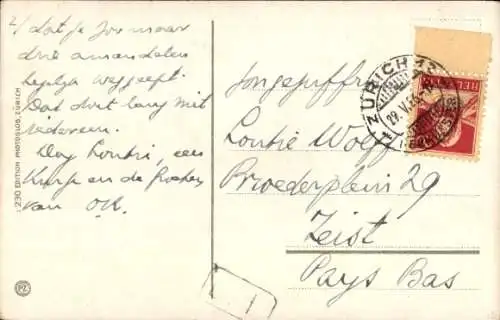 2/ dat je zoo maar
drie amandelen
hebt weggeeft.
Dat doet lang niet
iedereen.
Dag Loutie, een
kusje en de groeten
van OK.
230 EDITION PHOTOGLOB, ZÜRICH
PZ
Jongejuffrouw
Loutie Wolff
Broederplein 29
Zeist
Pays Bas
ZÜRICH
HELVETIA